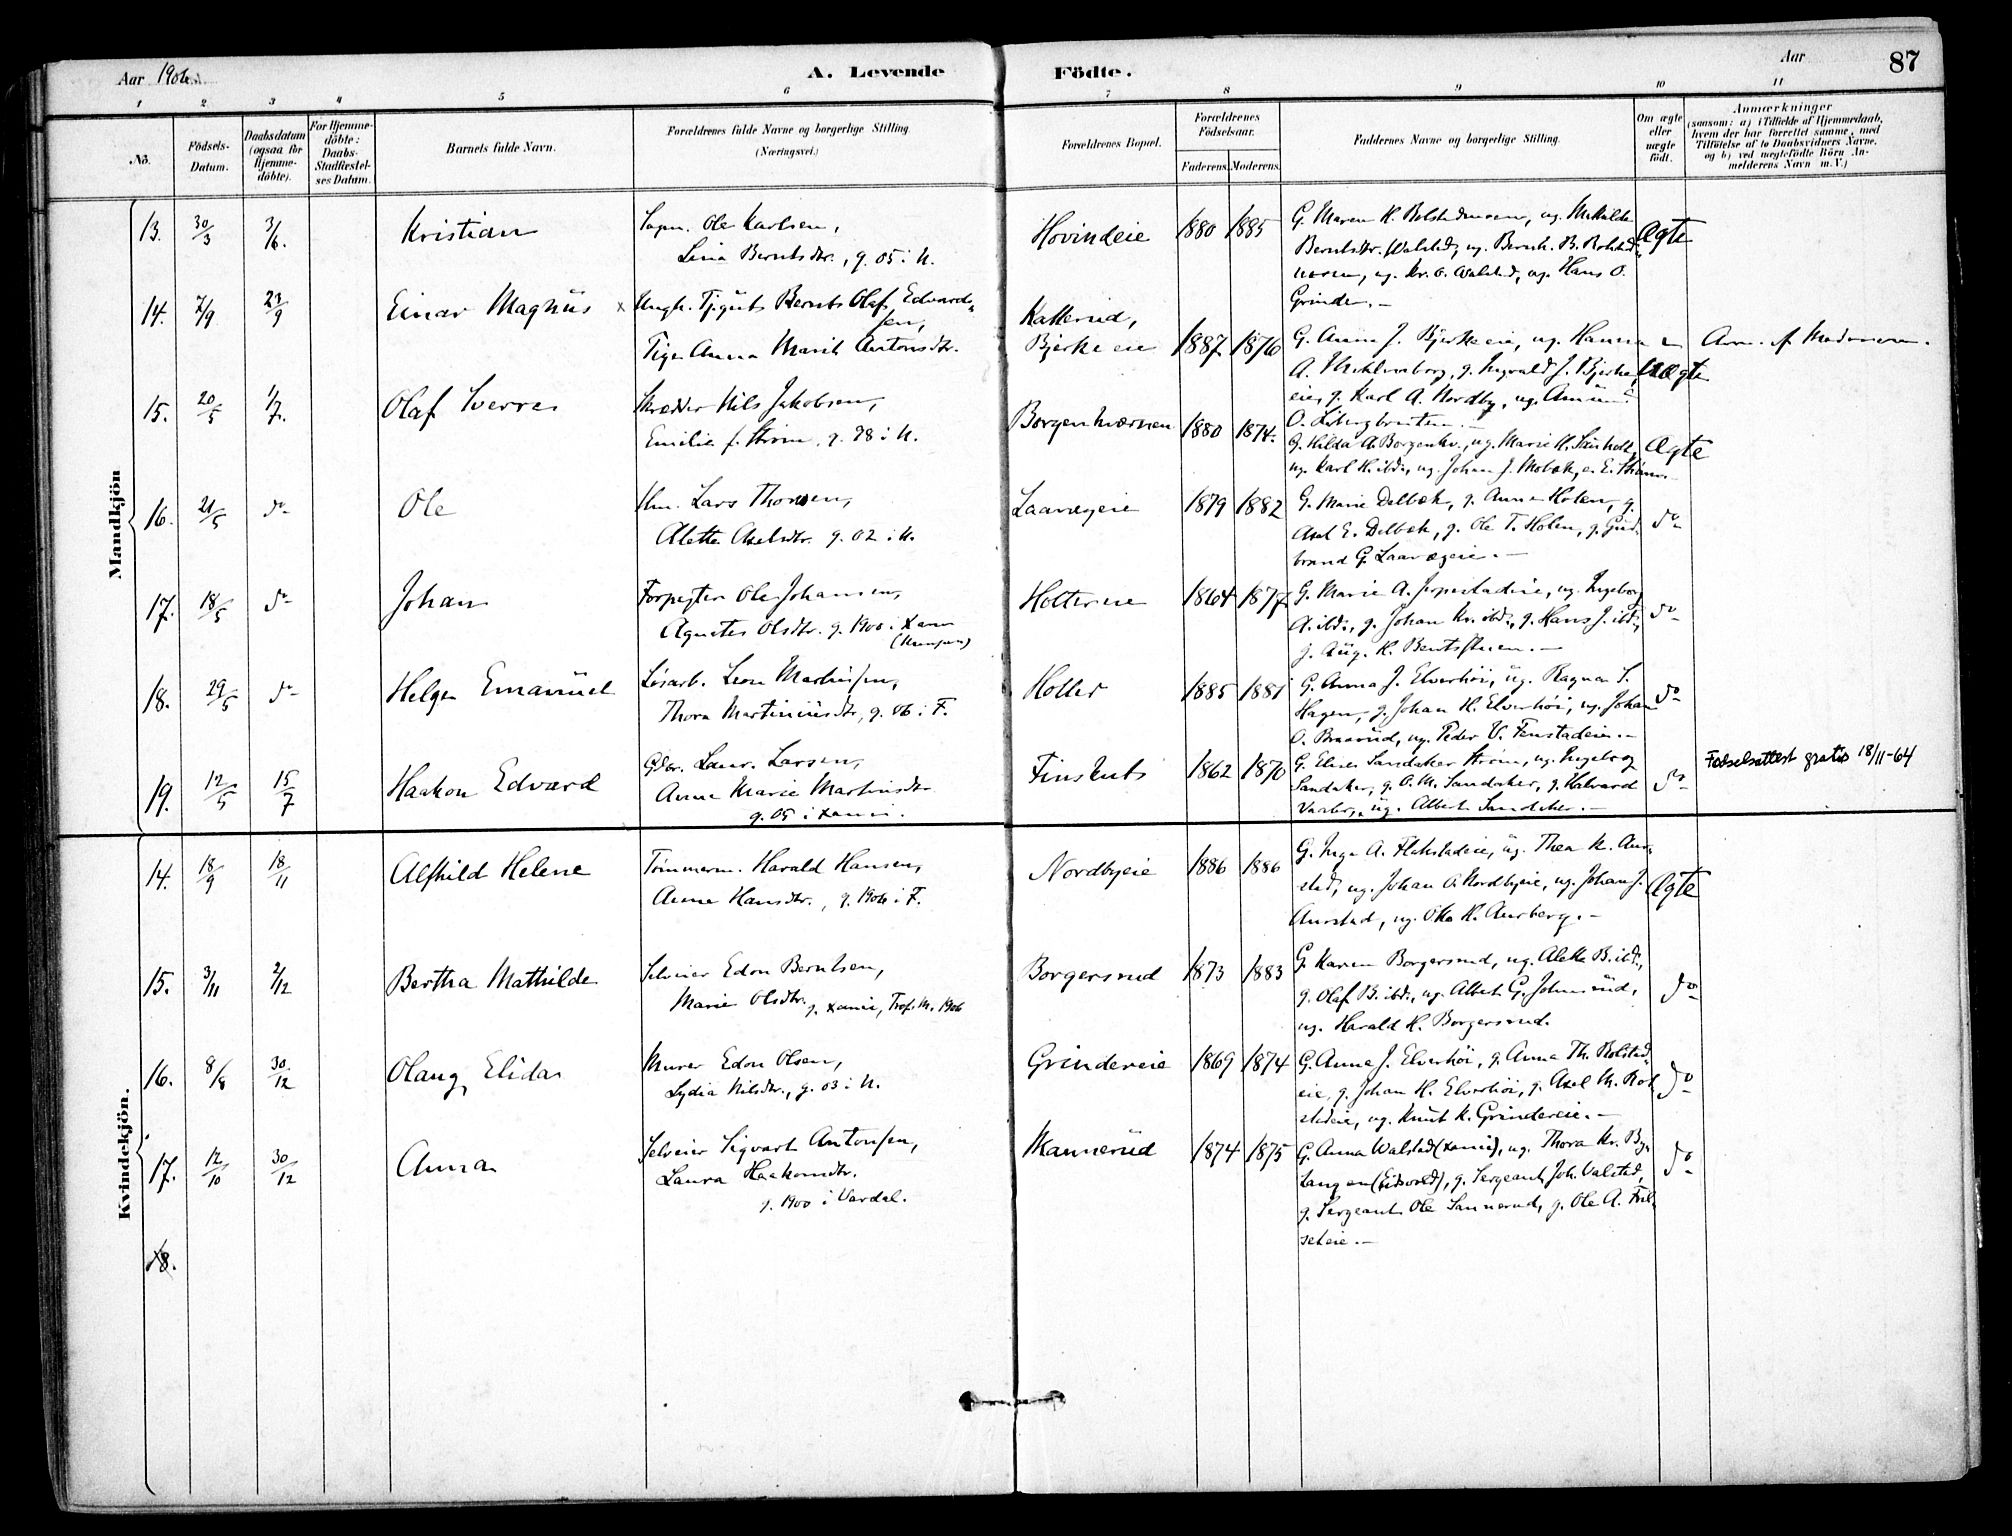 Aar 1906.
A. Levende Födte.
Aar
87
1 2 3 4 5 6 7 8 9 10 11
No.
Födsels-Datum.
Daabsdatum (ogsaa for Hjemme-döbte).
For Hjemme-döbte: Daabs-Stadfæstel-ses Datum.
Barnets fulde Navn.
Forældrenes fulde Navne og borgerlige Stilling.
(Næringsvei.)
Forældrenes Bopæl.
Forældrenes Födselsaar.
Faderens. Moderens.
Faddernes Navne og borgerlige Stilling.
Om ægte eller uægte födt.
Anmærkninger
(saasom: a) i Tilfælde af Hjemmedaab,
hvem der har forrettet samme, med
Tilföielse af to Daabsvidners Navne,
og b) ved uægtefödte Börn An-
melderens Navn m. V.)
Mandkjön
13. 30/3 3/6. Kristian
Sagm. Ole Karlsen,
Lina Berntsdtr., g. 05 i U.
Hovindeie 1880 1885
Berntsdtr. Walstad, ug. Bernh. B. Rolstad
ug. Kr. O. Walstad, ug. Hans O.
Grinder.-
Ægte
14. 7/9 23/9 Einar Magnus x
Ungk. Tjgut Bernt Olaf Edvard-
sen,
Tjge Anna Marit Antonsdtr.
Kallerud,
Bjerkeeie 1887 1876
G. Anna J. Bjerkeeie, ug. Hanna
eie, g. Karl A. Nordby, ug. Amund
Uægte
Anm. af Moderen.
15. 20/5 1/7. Olaf Sverre
Skrædder Nils Jakobsen,
Emilie f. Strøm, g. 98 i U.
Borgenkværnen 1880 1874.
ug. Karl H. ibd., ug. Johan J. Mobæk, e. E. Strøm.
Ægte
16. 21/5 do Ole
Hm. Lars Thorsen,
Alette Axelsdtr. g. 02 i U.
Laaragereie 1879 1882
G. Marie Delbæk, g. Anna Holen, g.
Axel E. Delbæk, g. Ole T. Holen, g. Gud-
brand G.
do
17. 18/5 do Johan
Forpagter Ole Johansen,
Agnetes Olsdtr. g. 1900 i Xania
Holtereie 1864 1877
G. Marie A. ug. Ingeborg
A. ibd., g. Johan Kr. ibd., g. Hans J. ibd.,
g. Aug. K.
do
18. 29/5 do Helge Emanuel
Løsarb. Leon Martinsen,
Thora Martiniusdtr, g. 06 i F.
Holter 1885 1881
G. Anna J. Elverhøi, ug. Ragna S.
Hagen, g. Johan H. Elverhøi, ug. Johan
O. Braarud, ug. Peder V. Fenstadeie.-
do
19. 12/5 15/7 Haakon Edvard
Gbr. Laur. Larsen,
Anne Marie Martinsdtr
g. 05 i Xania.
Finskuts 1862 1870
G. Elise Sandaker Strøm, ug. Ingeborg
Sandaker, g. O. M. Sandaker, g. Halvard
ug. Albert Sandaker.-
do
Fødselsattest gratis 18/11-64
Kvindekjön.
14. 18/9 18/11 Alfhild Helene
Tømmerm. Harald Hansen,
Anna Hansdtr., g. 1906 i F.
Nordbyeie 1886 1886
G. Inga A. Flakstadeie, ug. Thea K. Aur-
stad, ug. Johan A. Nordbyeie, ug. Johan J.
Aurstad, ug. Otto H. Aurberg.-
Ægte
15. 3/11 2/12 Bertha Mathilde
Selveier Edon Berntsen,
Marie Olsdtr. g. Xania, Trof. M. 1906
Borgersrud 1873 1883
G. Karen Borgersrud, ug. Alette B. ibd.,
g. Olaf B. ibd., ug. Albert G. Johnsrud,
ug. Harald H. Borgersrud.
do
16. 8/8 30/12 Olaug Elida
Murer Edon Olsen,
Lydia Nilsdtr., g. 03 i U.
Grindereie 1869 1874
G. Anna J. Elverhøi, g. Anna Th. Rolstad-
eie, g. Johan H. Elverhøi, g. Axel M. Rol
stadeie, ug. Knut K. Grindereie.-
do
17. 12/10 30/12 Anna
Selveier Sigvart Antonsen,
Laura Haakonsdtr.
g. 1900 i Vardal.
Mannerud 1874 1875
G. Anna Walstad (Xania), ug. Thora Kr. Bye
Langen (Eidsvold), g. Sergeant Joh. Valstad,
g. Sergeant Ole Sannerud, g. Ole A. Fril-
seteie.-
do
18.